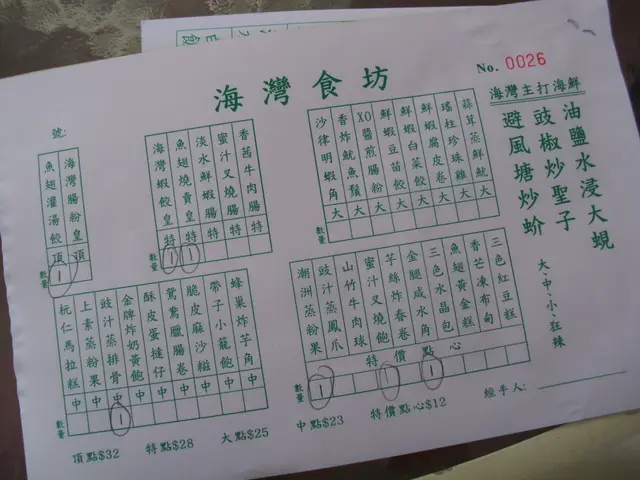 海灣食坊
No. 0026
海灣主打海鮮
油鹽水浸大蜆
豉椒炒聖子
避風塘炒蚧
大、中、小、狂辣
號:
海灣腸粉皇 頂
魚翅灌湯餃 頂 1
數量
香茜牛肉腸 特
蜜汁叉燒腸 特
淡水鮮蝦腸 特
魚翅燒賣皇 特 1
海灣蝦餃皇 特 1
蒜茸蒸鮮魷 大
瑤柱珍珠雞 大
鮮蝦腐皮卷 大
鮮蝦白菜餃 大
鮮蝦豆苗餃 大
XO醬煎腸粉 大
香炸魷魚鬚 大
沙律明蝦角 大
蜂巢炸芋角 中
帶子小籠飽 中
脆皮麻沙糍 中
鴛鴦臘腸卷 中
酥皮蛋撻仔 中
金牌炸奶黃飽 中 1
豉汁蒸排骨 中
上素蒸粉果 中
杬仁馬拉糕 中
數量
三色紅豆糕
香芒凍布甸
魚翅黃金糕
三色水晶包 1
金腿咸水角
芋絲炸春卷 1
蜜汁叉燒飽
山竹牛肉球
豉汁蒸鳳爪
潮洲蒸粉果 1
特價點心
數量
頂點$32 特點$28 大點$25 中點$23 特價點心$12
經手人: